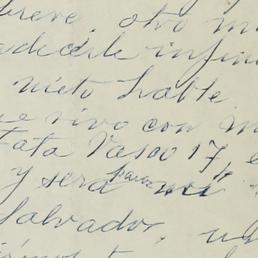 breve, otro m
adecerle infin
nieto hable
ue vivo con m
Tata Vasco 17, e
y será para mi
Salvador,